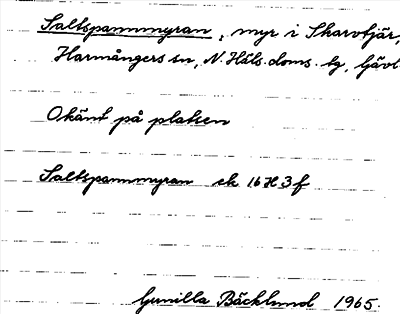 Saltspannmyran, myr i Skarvtjär,
Harmångers sn, N. Häls. doms. tg, Gävl
Okänt på platsen
Saltspannmyran ek 16H3f
Gunilla Bäcklund 1965.